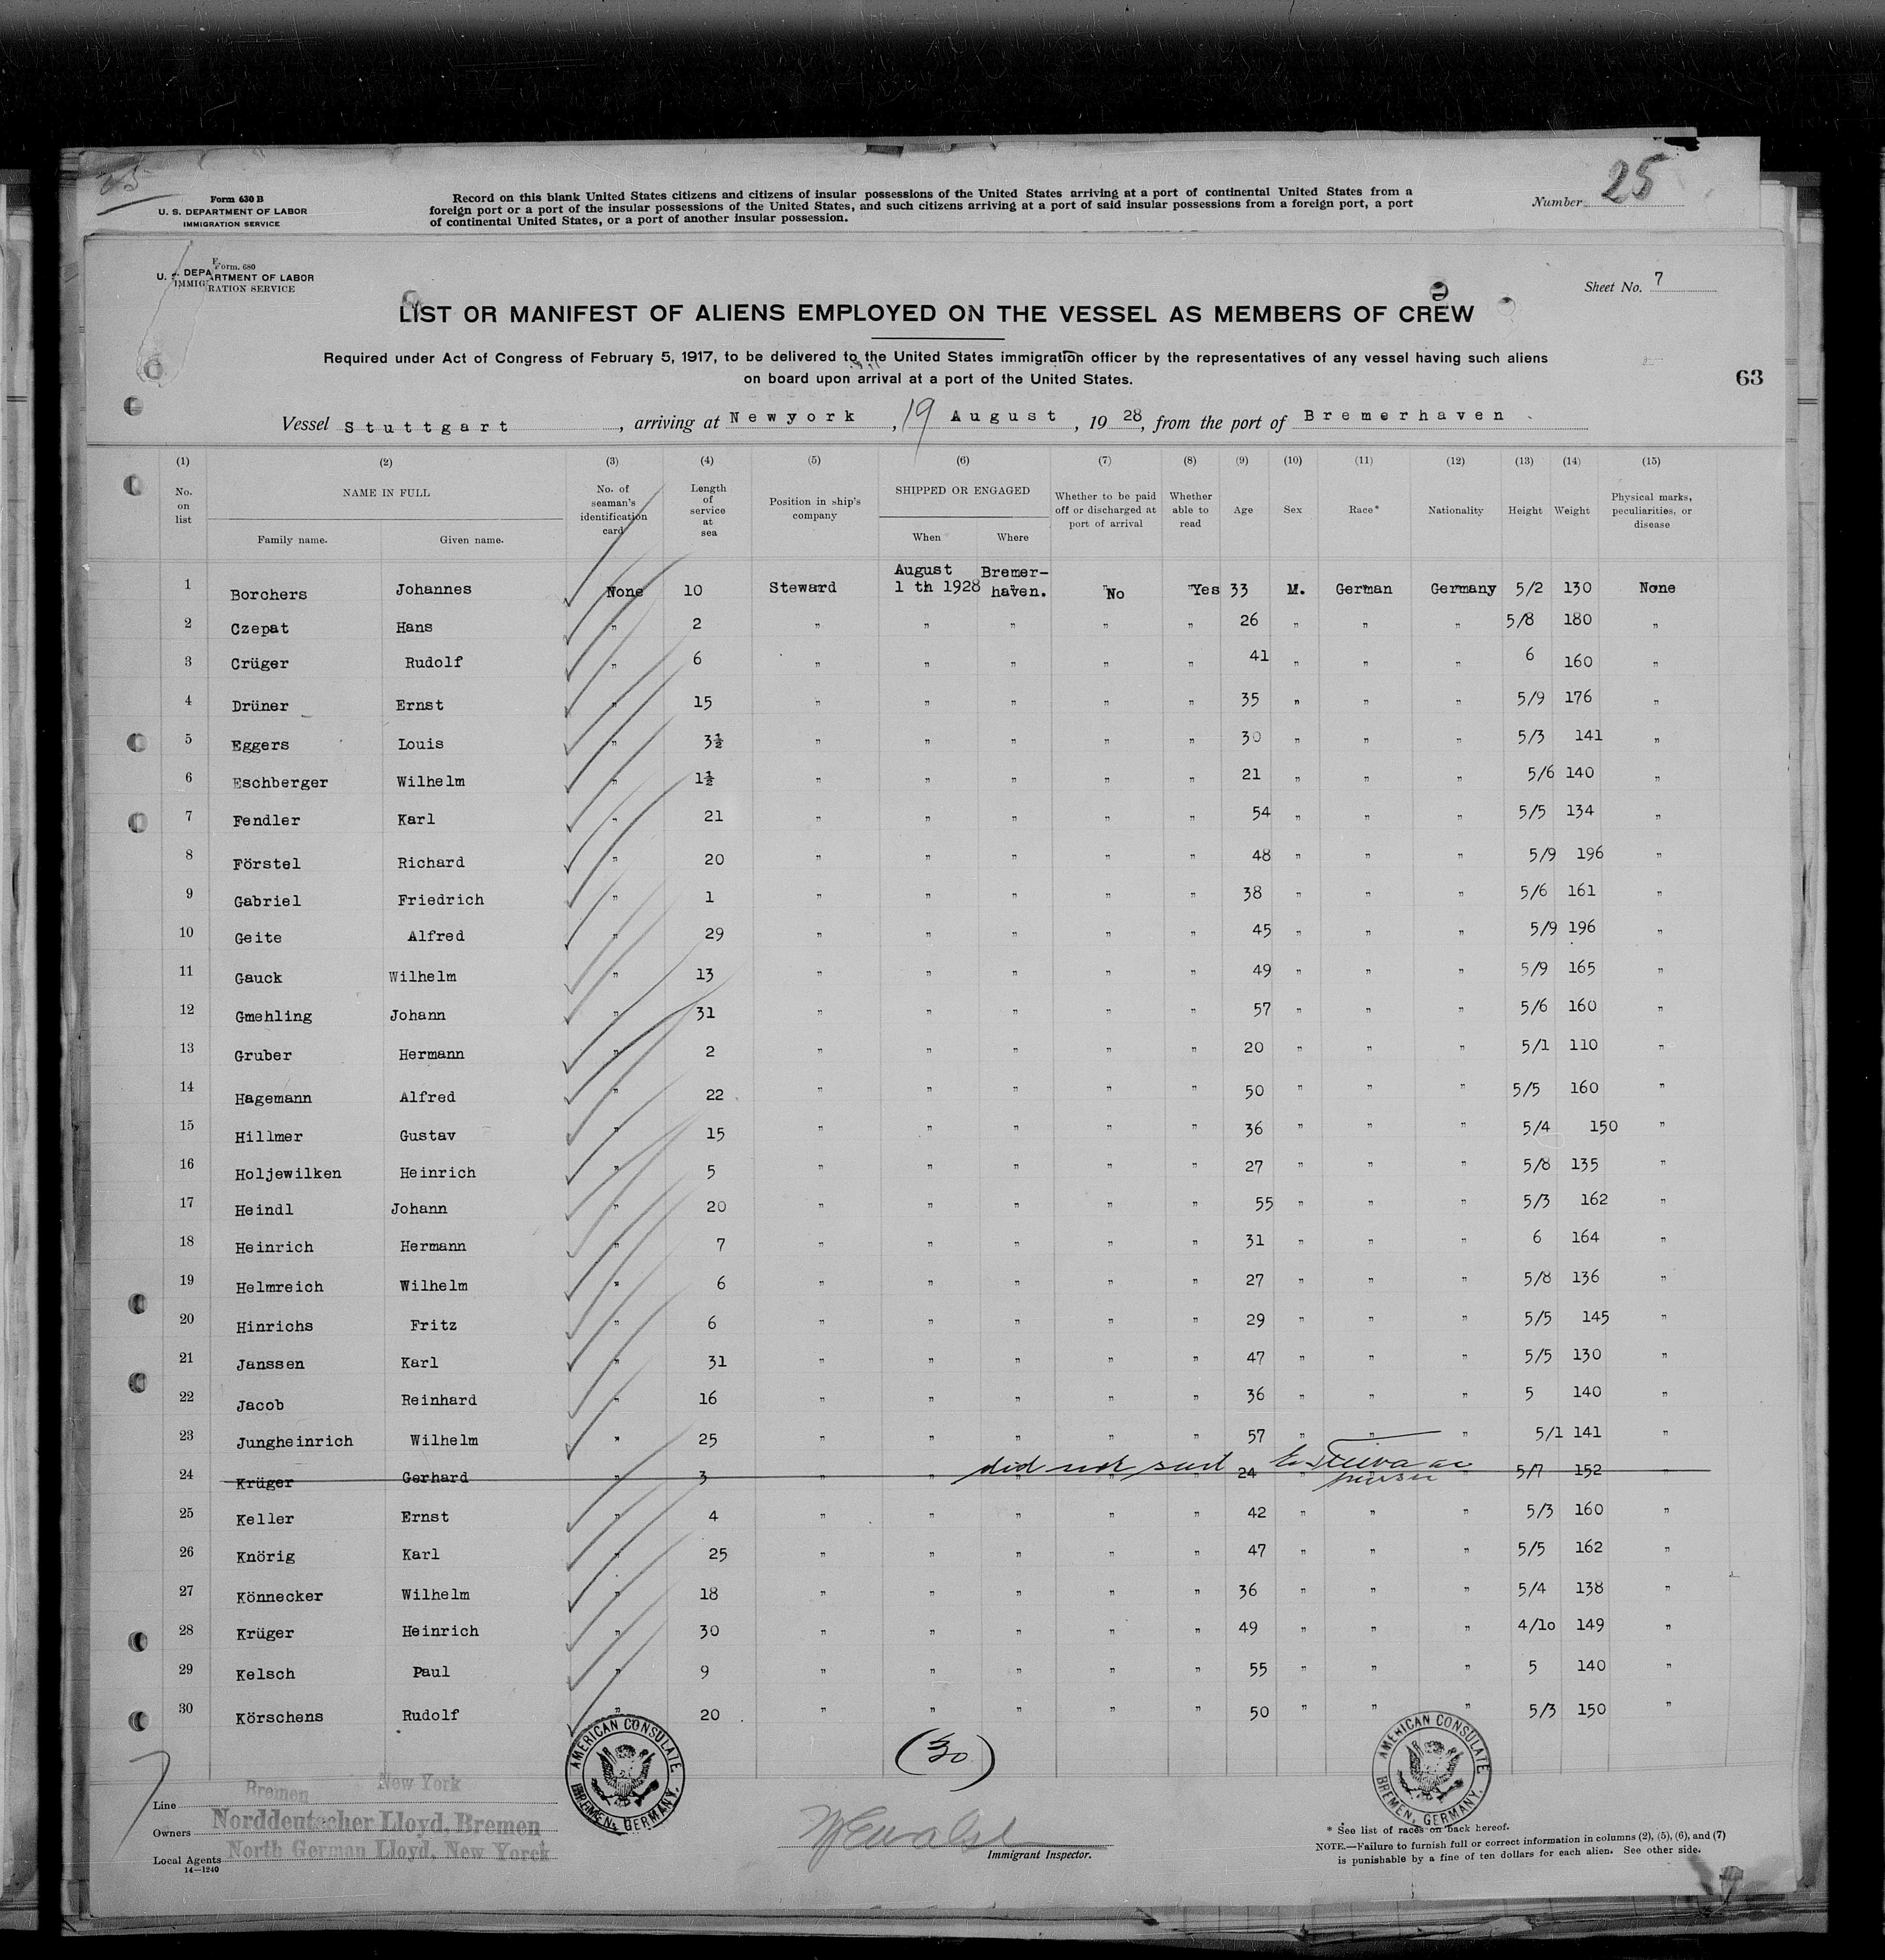 25
Form 630 B
U. S. DEPARTMENT OF LABOR
IMMIGRATION SERVICE
Record on this blank United States citizens and citizens of insular possessions of the United States arriving at a port of continental United States from a
foreign port or a port of the insular possessions of the United States, and such citizens arriving at a port of said insular possessions from a foreign port, a port
of continental United States, or a port of another insular possession.
Number 25
Form. 680
U. S. DEPARTMENT OF LABOR
IMMIGRATION SERVICE
Sheet No. 7
LIST OR MANIFEST OF ALIENS EMPLOYED ON THE VESSEL AS MEMBERS OF CREW
Required under Act of Congress of February 5, 1917, to be delivered to the United States immigration officer by the representatives of any vessel having such aliens
on board upon arrival at a port of the United States.
63
Vessel Stuttgart, arriving at Newyork, 19 August, 1928, from the port of Bremerhaven.
(1) (2) (3) (4) (5) (6) (7) (8) (9) (10) (11) (12) (13) (14) (15)
No. on list NAME IN FULL Family name. Given name. No. of seaman's identification card Length of service at sea Position in ship's company SHIPPED OR ENGAGED When Where Whether to be paid off or discharged at port of arrival Whether able to read Age Sex Race* Nationality Height Weight Physical marks, peculiarities, or disease
1 Borchers Johannes None 10 Steward August 1 th 1928 Bremer-haven. No Yes 33 M. German Germany 5/2 130 None
2 Czepat Hans " 2 " " " " " 26 " " " 5/8 180 "
3 Crüger Rudolf " 6 " " " " " 41 " " " 6 160 "
4 Drüner Ernst " 15 " " " " " 35 " " " 5/9 176 "
5 Eggers Louis " 3½ " " " " " 30 " " " 5/3 141 "
6 Eschberger Wilhelm " 1½ " " " " " 21 " " " 5/6 140 "
7 Fendler Karl " 21 " " " " " 54 " " " 5/5 134 "
8 Förstel Richard " 20 " " " " " 48 " " " 5/9 196 "
9 Gabriel Friedrich " 1 " " " " " 38 " " " 5/6 161 "
10 Geite Alfred " 29 " " " " " 45 " " " 5/9 196 "
11 Gauck Wilhelm " 13 " " " " " 49 " " " 5/9 165 "
12 Gmehling Johann " 31 " " " " " 57 " " " 5/6 160 "
13 Gruber Hermann " 2 " " " " " 20 " " " 5/1 110 "
14 Hagemann Alfred " 22 " " " " " 50 " " " 5/5 160 "
15 Hillmer Gustav " 15 " " " " " 36 " " " 5/4 150 "
16 Holjewilken Heinrich " 5 " " " " " 27 " " " 5/8 135 "
17 Heindl Johann " 20 " " " " " 55 " " " 5/3 162 "
18 Heinrich Hermann " 7 " " " " " 31 " " " 6 164 "
19 Helmreich Wilhelm " 6 " " " " " 27 " " " 5/8 136 "
20 Hinrichs Fritz " 6 " " " " " 29 " " " 5/5 145 "
21 Janssen Karl " 31 " " " " " 47 " " " 5/5 130 "
22 Jacob Reinhard " 16 " " " " " 36 " " " 5 140 "
23 Jungheinrich Wilhelm " 25 " " " " " 57 " " " 5/1 141 "
24 Krüger Gerhard 3 " " did not sail 24 5/7 152 "
25 Keller Ernst " 4 " " " " " 42 " " " 5/3 160 "
26 Knörig Karl " 25 " " " " " 47 " " " 5/5 162 "
27 Könnecker Wilhelm " 18 " " " " " 36 " " " 5/4 138 "
28 Krüger Heinrich " 30 " " " " " 49 " " " 4/10 149 "
29 Kelsch Paul " 9 " " " " " 55 " " " 5 140 "
30 Körschens Rudolf " 20 " " " " " 50 " " " 5/3 150 "
(30)
AMERICAN CONSULATE BREMEN, GERMANY.
AMERICAN CONSULATE BREMEN, GERMANY.
Line Bremen New York
Owners Norddeutscher Lloyd, Bremen
Local Agents North German Lloyd, New Yorck
14—1240
Immigrant Inspector.
* See list of races on back hereof.
NOTE.—Failure to furnish full or correct information in columns (2), (5), (6), and (7)
is punishable by a fine of ten dollars for each alien. See other side.